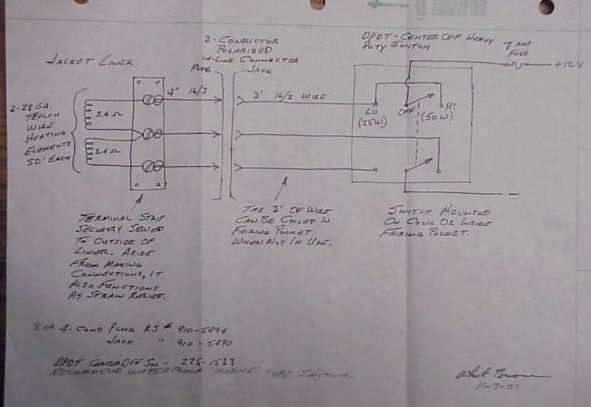 3-CONDUCTOR
POLARIZED
IN-LINE CONNECTOR
PLUG
JACK
DPDT-CENTER OFF HEAVY
DUTY SWITCH
7 AMP
FUSE
+12V
JACKET LINER
4" 16/3
3' 16/3 WIRE
2-28 GA.
TEFLON
WIRE
HEATING
ELEMENTS
50' EACH
3.4 Ω
3.4 Ω
LO
(25W)
OFF
HI
(50W)
TERMINAL STRIP
SECURELY SEWED
TO OUTSIDE OF
LINER. ASIDE
FROM MAKING
CONNECTIONS, IT
ALSO FUNCTIONS
AS STRAIN RELIEF.
THE 3' OF WIRE
CAN BE COILED IN
FAIRING POCKET
WHEN NOT IN USE.
SWITCH MOUNTED
ON COWL OR INSIDE
FAIRING POCKET.
3 OR 4-COND PLUG RS # 910-5494
JACK " 910-5490
DPDT CENTER OFF SW - 275-1533
RECOMMEND WATERPROOF "MARINE" TYPE SWITCH.
11-7-01